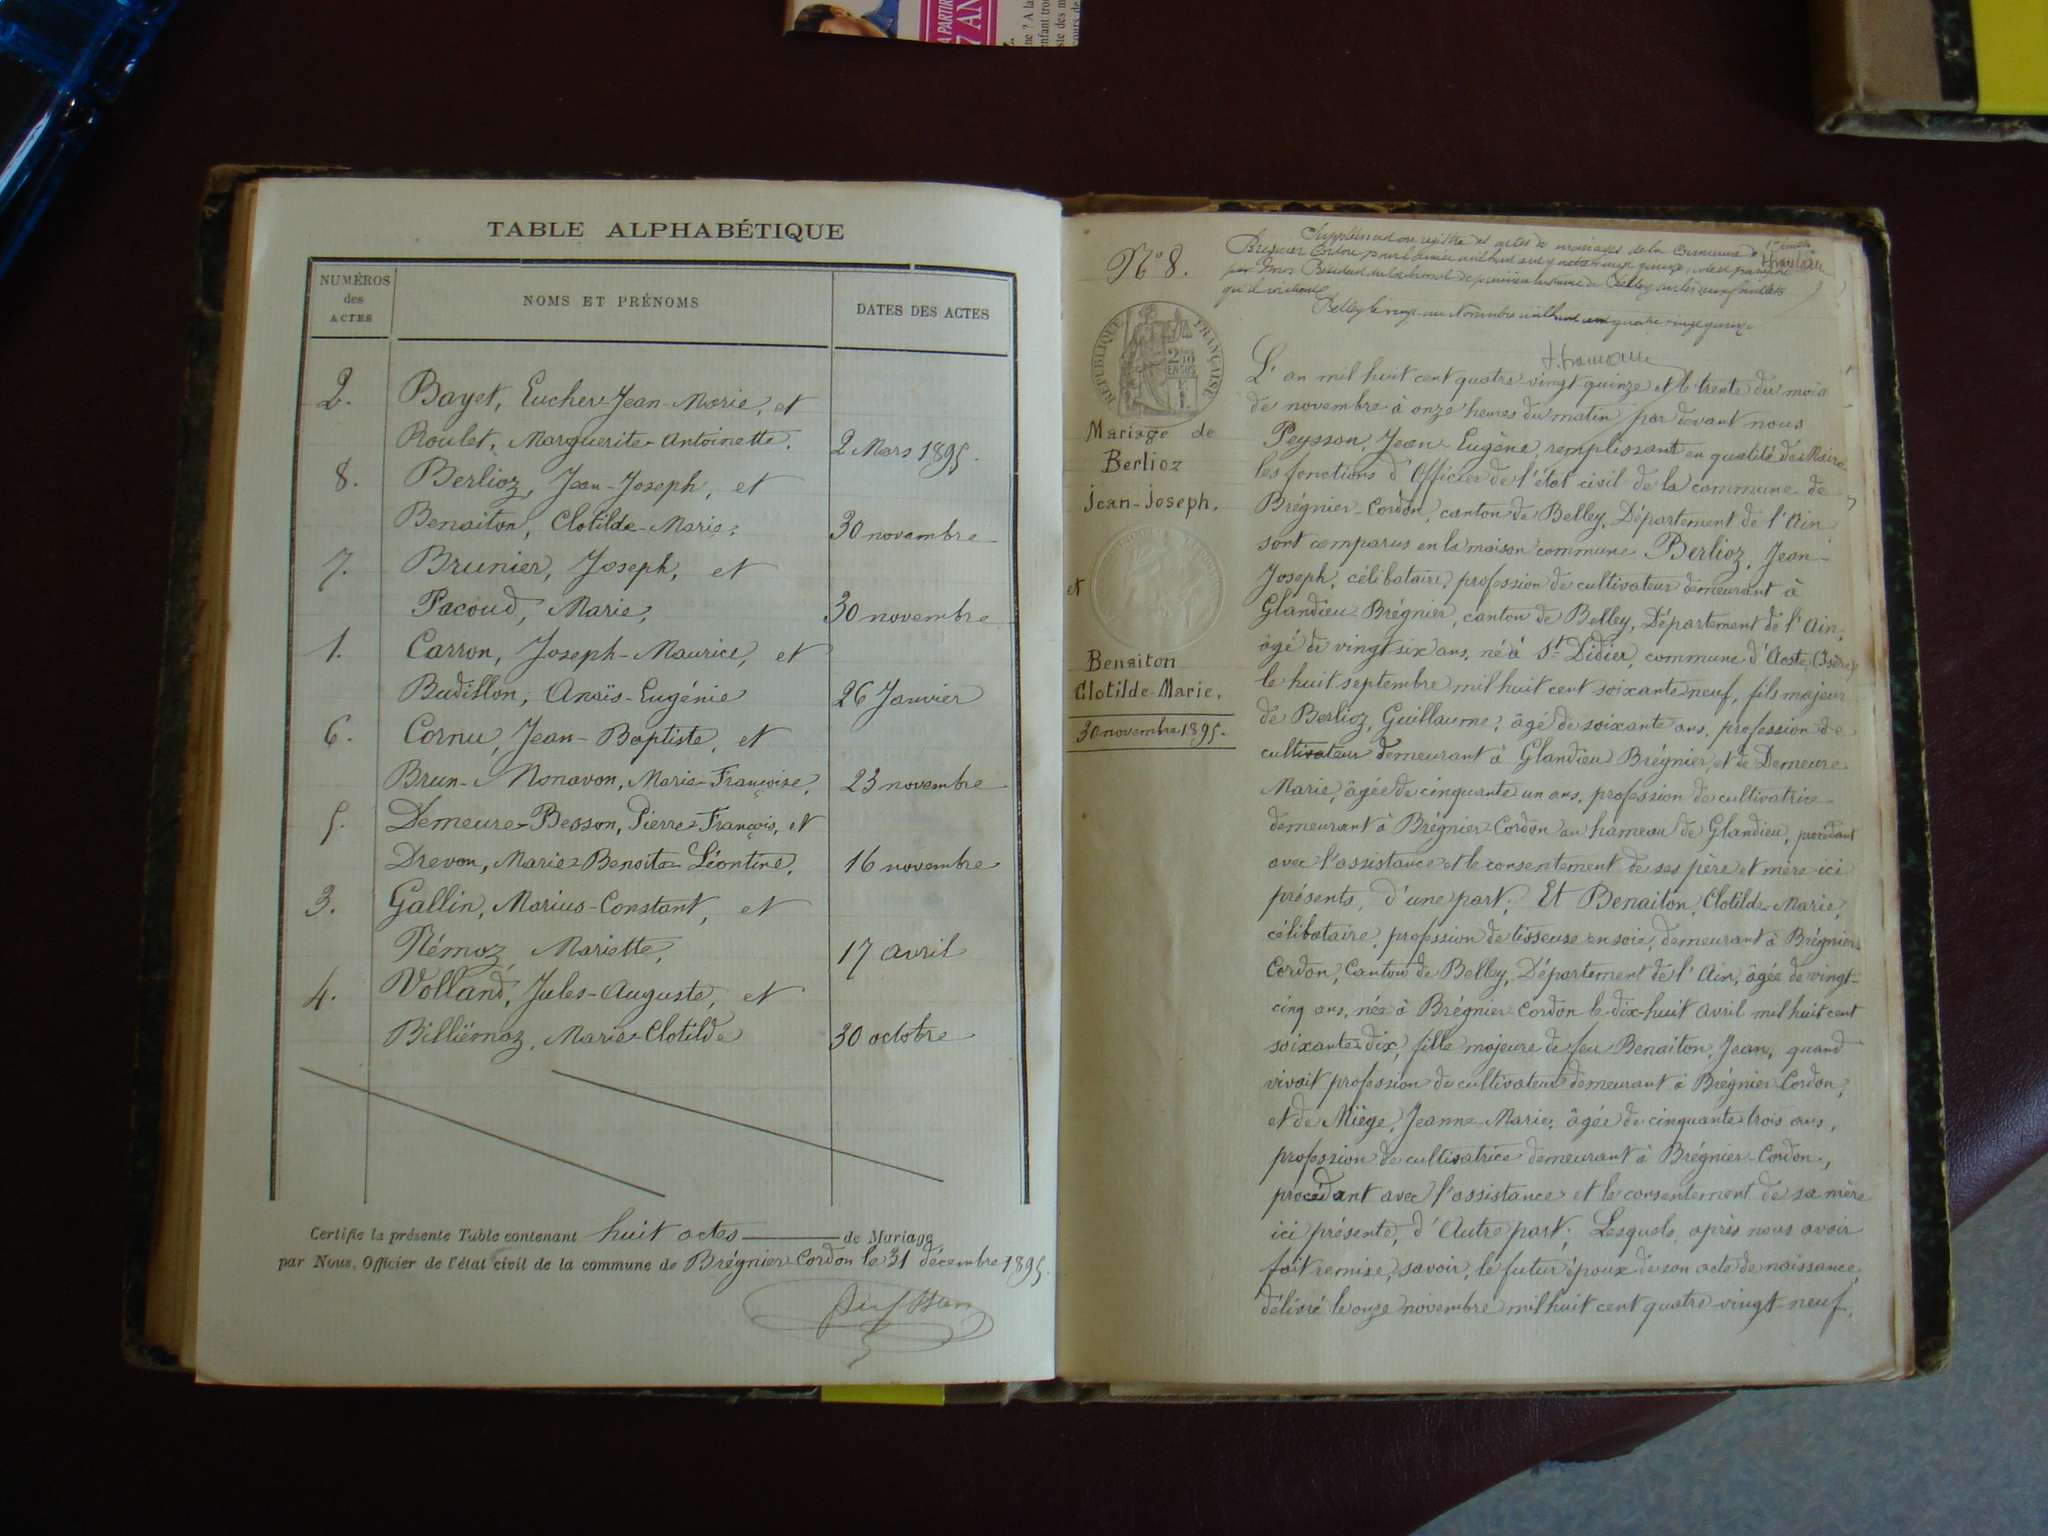 A PARTIR
7 ANS
TABLE ALPHABÉTIQUE
NUMÉROS des ACTES
NOMS ET PRÉNOMS
DATES DES ACTES
2. Bayet, Eucher-Jean-Marie, et
Roulet, Marguerite-Antoinette. 2 Mars 1895.
8. Berlioz, Jean-Joseph, et
Benaiton, Clotilde-Marie; 30 novembre
7. Brunier, Joseph, et
Pacoud, Marie, 30 novembre
1. Carron, Joseph-Maurice, et
Budillon, Anaïs-Eugénie 26 Janvier
6. Cornu, Jean-Baptiste, et
Brun-Monavon, Marie-Françoise, 23 novembre
5. Demeure-Besson, Pierre-François, et
Drevon, Marie-Benoite-Léontine, 16 novembre
3. Gallin, Marius-Constant, et
Némoz, Mariette, 17 avril
4. Volland, Jules-Auguste, et
Billiémaz, Marie-Clotilde 30 octobre
Certifie la présente Table contenant huit actes de Mariage
par Nous, Officier de l'état civil de la commune de Brégnier-Cordon le 31 décembre 1895.
N° 8.
Supplément au registre de mariages de la Commune de
Brégnier Cordon
Belley le vingt novembre mil huit cent quatre vingt quinze
RÉPUBLIQUE FRANÇAISE
Mariage de
Berlioz
Jean-Joseph.
et
Benaiton
Clotilde-Marie,
30 novembre 1895.
L'an mil huit cent quatre-vingt quinze et le trente du mois
de novembre à onze heures du matin par devant nous
Peysson, Jean-Eugène, remplissant en qualité de Maire
les fonctions d'Officier de l'état civil de la commune de
Brégnier-Cordon, canton de Belley, Département de l'Ain
sont comparus en la maison commune Berlioz, Jean-
Joseph, célibataire, profession de cultivateur demeurant à
Glandieu-Brégnier, canton de Belley, Département de l'Ain,
âgé de vingt six ans, né à St Didier, commune d'Aoste, (Isère)
le huit septembre mil huit cent soixante neuf, fils majeur
de Berlioz, Guillaume, âgé de soixante ans, profession de
cultivateur demeurant à Glandieu Brégnier, et de Demeure
Marie, âgée de cinquante un ans, profession de cultivatrice
demeurant à Brégnier-Cordon au hameau de Glandieu, procédant
avec l'assistance et le consentement de ses père et mère ici
présents, d'une part; Et Benaiton, Clotilde-Marie,
célibataire, profession de tisseuse en soie, demeurant à Brégnier-
Cordon, Canton de Belley, Département de l'Ain, âgée de vingt-
cinq ans, née à Brégnier-Cordon le dix-huit avril mil huit cent
soixante-dix, fille majeure de feu Benaiton, Jean, quand
vivait profession de cultivateur demeurant à Brégnier-Cordon,
et de Miège, Jeanne-Marie, âgée de cinquante trois ans,
profession de cultivatrice demeurant à Brégnier-Cordon,
procédant avec l'assistance et le consentement de sa mère
ici présente, d'Autre part; Lesquels, après nous avoir
fait remise, savoir, le futur époux de son acte de naissance
délivré le onze novembre mil huit cent quatre-vingt-neuf,